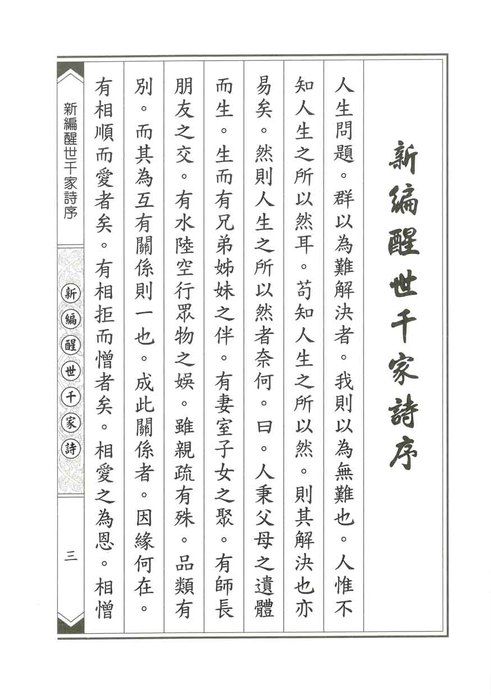 新編醒世千家詩序
人生問題。群以為難解決者。我則以為無難也。人惟不
知人生之所以然耳。苟知人生之所以然。則其解決也亦
易矣。然則人生之所以然者奈何。曰。人秉父母之遺體
而生。生而有兄弟姊妹之伴。有妻室子女之聚。有師長
朋友之交。有水陸空行眾物之娛。雖親疏有殊。品類有
別。而其為互有關係則一也。成此關係者。因緣何在。
有相順而愛者矣。有相拒而憎者矣。相愛之為恩。相憎
新編醒世千家詩序
新編醒世千家詩
三